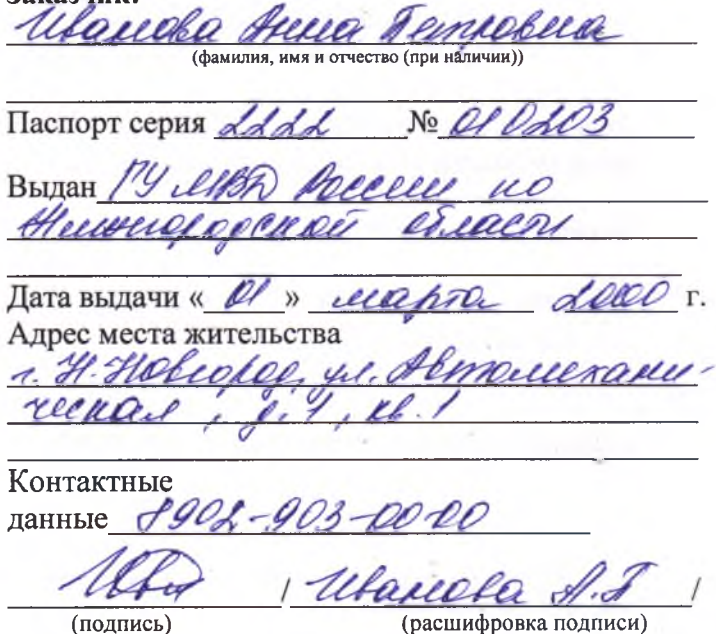 Заказчик:
Иванова Анна Петровна
(фамилия, имя и отчество (при наличии))
Паспорт серия 2222 № 010203
Выдан ГУ МВД России по
Нижегородской области
Дата выдачи « 01 » марта 2000 г.
Адрес места жительства
г. Н.Новгород, ул. Автомехани-
ческая, д.1, кв.1
Контактные
данные 8902-903-00-00
Ива / Иванова А.П /
(подпись) (расшифровка подписи)